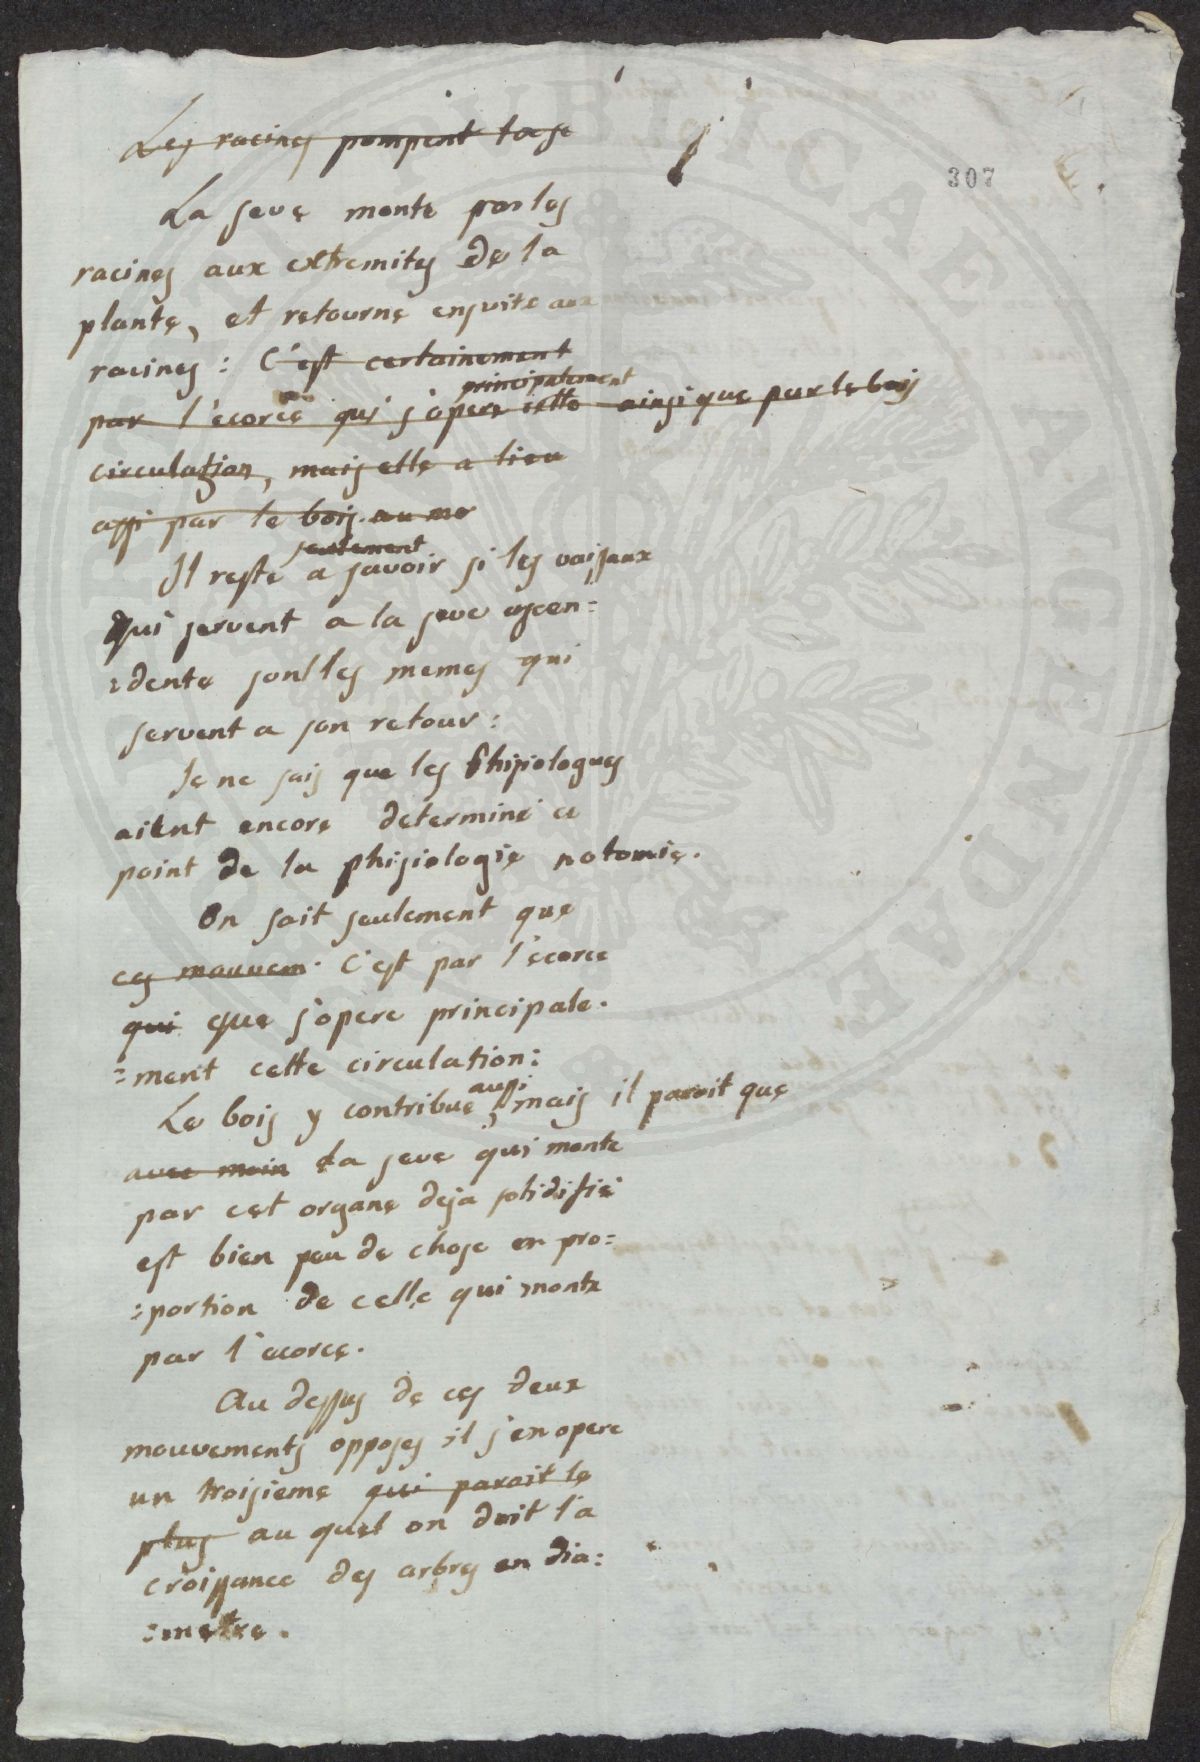 Les racines pompent
307
La seve monte par les
racines aux extremites de la
plante, et retourne ensuite aux
racines : C'est certainement
principalement
par l'ecorce qui s'opere cette ainsi que par le bois
circulation, mais elle a lieu
assi par le bois. au
seulement
Il reste a savoir si les vaissaux
qui servent a la seve ascen=
=dente sont les memes qui
servent a son retour :
Je ne sais que les Phisiologues
aient encore determiné ce
point de la phisiologie notomie.
On sait seulement que
ces mouvem. C'est par l'ecorce
qui que s'opere principale.
=ment cette circulation :
aussi
Le bois y contribue, mais il paroit que
avec moin la seve qui monte
par cet organe deja solidifié
est bien peu de chose en pro=
=portion de celle qui monte
par l'ecorce.
Au dessus de ces deux
mouvements opposes il s'en opere
un troisieme qui parait le
plus au quel on doit la
croissance des arbres en dia=
=metre.